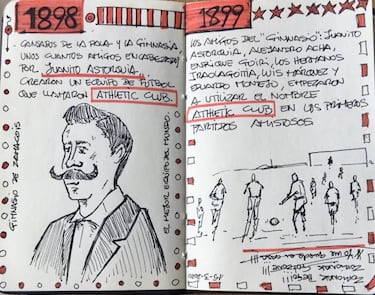 1898
CANSADOS DE LA PALA Y LA GIMNASIA,
UNOS CUANTOS AMIGOS ENCABEZADOS
POR JUANITO ASTORQUIA,
CREARON UN EQUIPO DE FÚTBOL
QUE LLAMARON ATHLETIC CLUB.
GIMNASIO DE ZAMACOIS
EL MEJOR EQUIPO DEL MUNDO.
1899
LOS AMIGOS DEL "GIMNASIO": JUANITO
ASTORQUIA, ALEJANDRO ACHA,
ENRIQUE GOIRI, LOS HERMANOS
IRAOLAGOITIA, LUIS MÁRQUEZ Y
EDUARDO MONTEJO, EMPEZARON
A UTILIZAR EL NOMBRE
ATHLETIC CLUB EN LOS PRIMEROS
PARTIDOS AMISTOSOS.